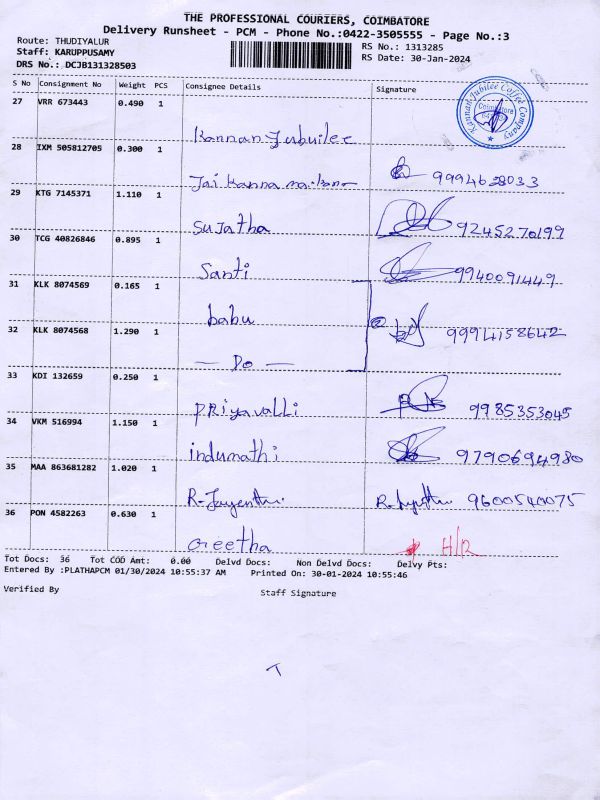 THE PROFESSIONAL COURIERS, COIMBATORE
Delivery Runsheet - PCM - Phone No.:0422-3505555 - Page No.:3
Route: THUDIYALUR
RS No.: 1313285
Staff: KARUPPUSAMY
RS Date: 30-Jan-2024
DRS No.: DCJB131328503
S No Consignment No Weight PCS Consignee Details Signature
27 VRR 673443 0.490 1 Kannan Jubuilee
Kannan Jubilee Coffee Company Coimbatore
28 IXM 505812705 0.300 1 Jai Kanna 9994628033
29 KTG 7145371 1.110 1 Sujatha 9245270199
30 TCG 40826846 0.895 1 Santi 9940091449
31 KLK 8074569 0.165 1 babu
32 KLK 8074568 1.290 1 — Do — 9994158642
33 KDI 132659 0.250 1 PRiyavalli 9985353045
34 VKM 516994 1.150 1 indumathi 9790694980
35 MAA 863681282 1.020 1 R. Jayenthi 9600540075
36 PON 4582263 0.630 1 Geetha H/R
Tot Docs: 36 Tot COD Amt: 0.00 Delvd Docs: Non Delvd Docs: Delvy Pts:
Entered By :PLATHAPCM 01/30/2024 10:55:37 AM Printed On: 30-01-2024 10:55:46
Verified By
Staff Signature